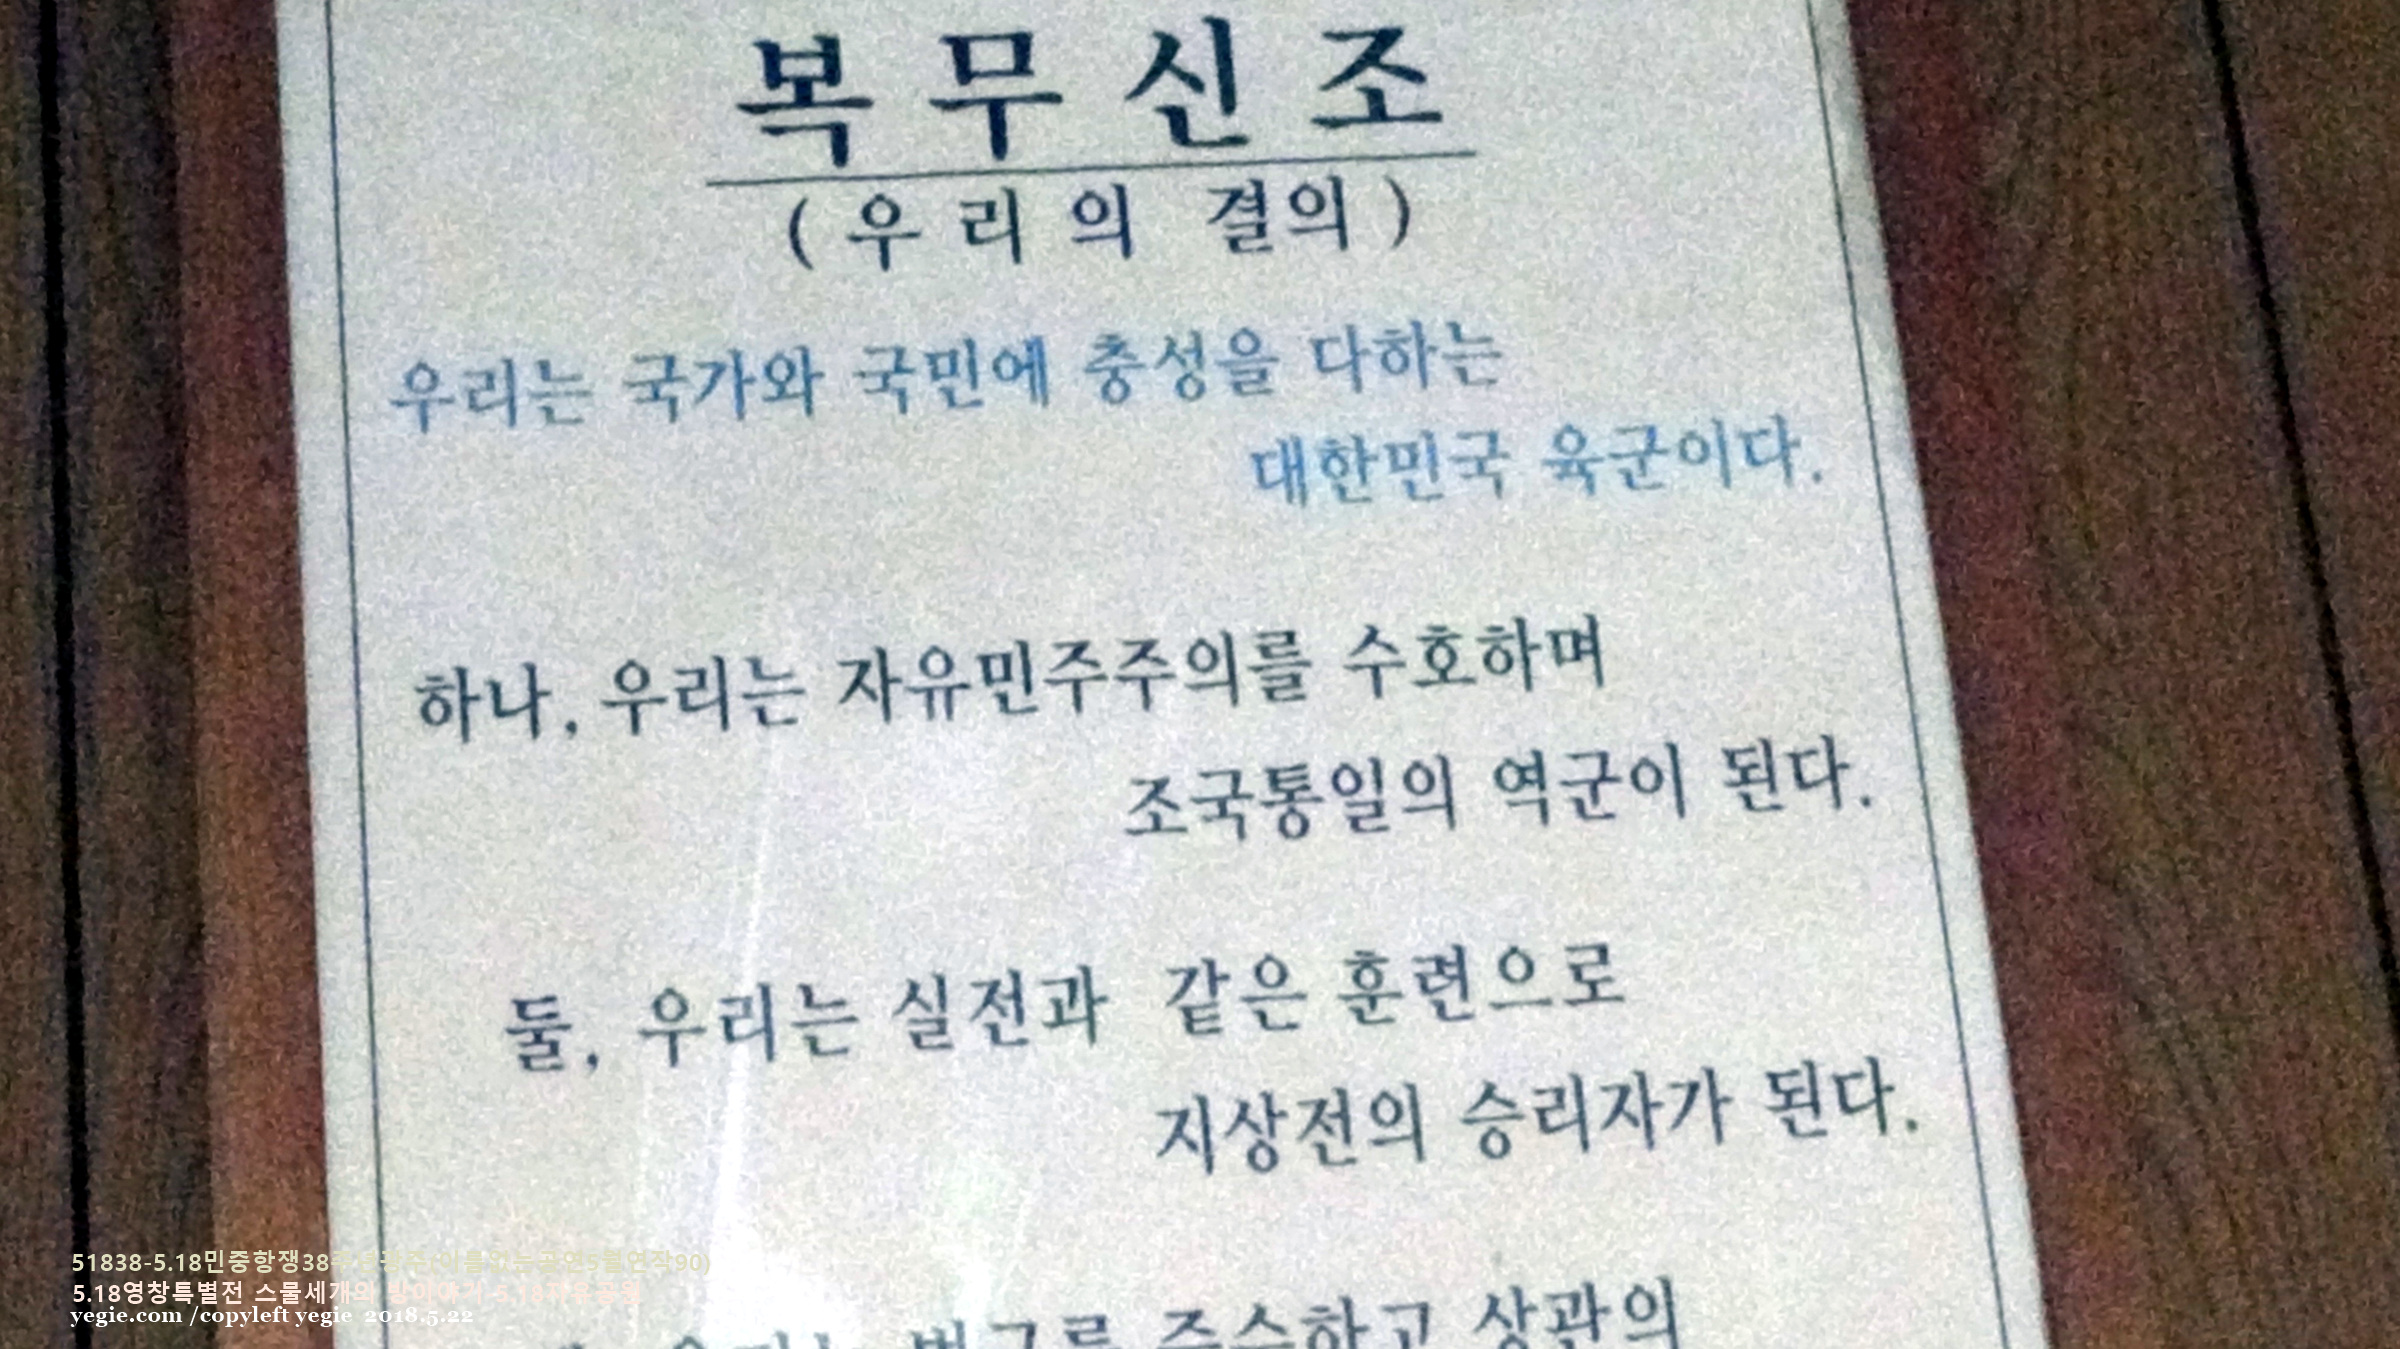 복무신조
(우리의 결의)
우리는 국가와 국민에 충성을 다하는
대한민국 육군이다.
하나, 우리는 자유민주주의를 수호하며
조국통일의 역군이 된다.
둘, 우리는 실전과 같은 훈련으로
지상전의 승리자가 된다.
우리는 법규를 준수하고 상관의
51838-5.18민중항쟁38주년광주(이름없는공연5월연작90)
5.18영창특별전 스물세개의 방이야기 5.18자유공원
yegie.com /copyleft yegie 2018.5.22